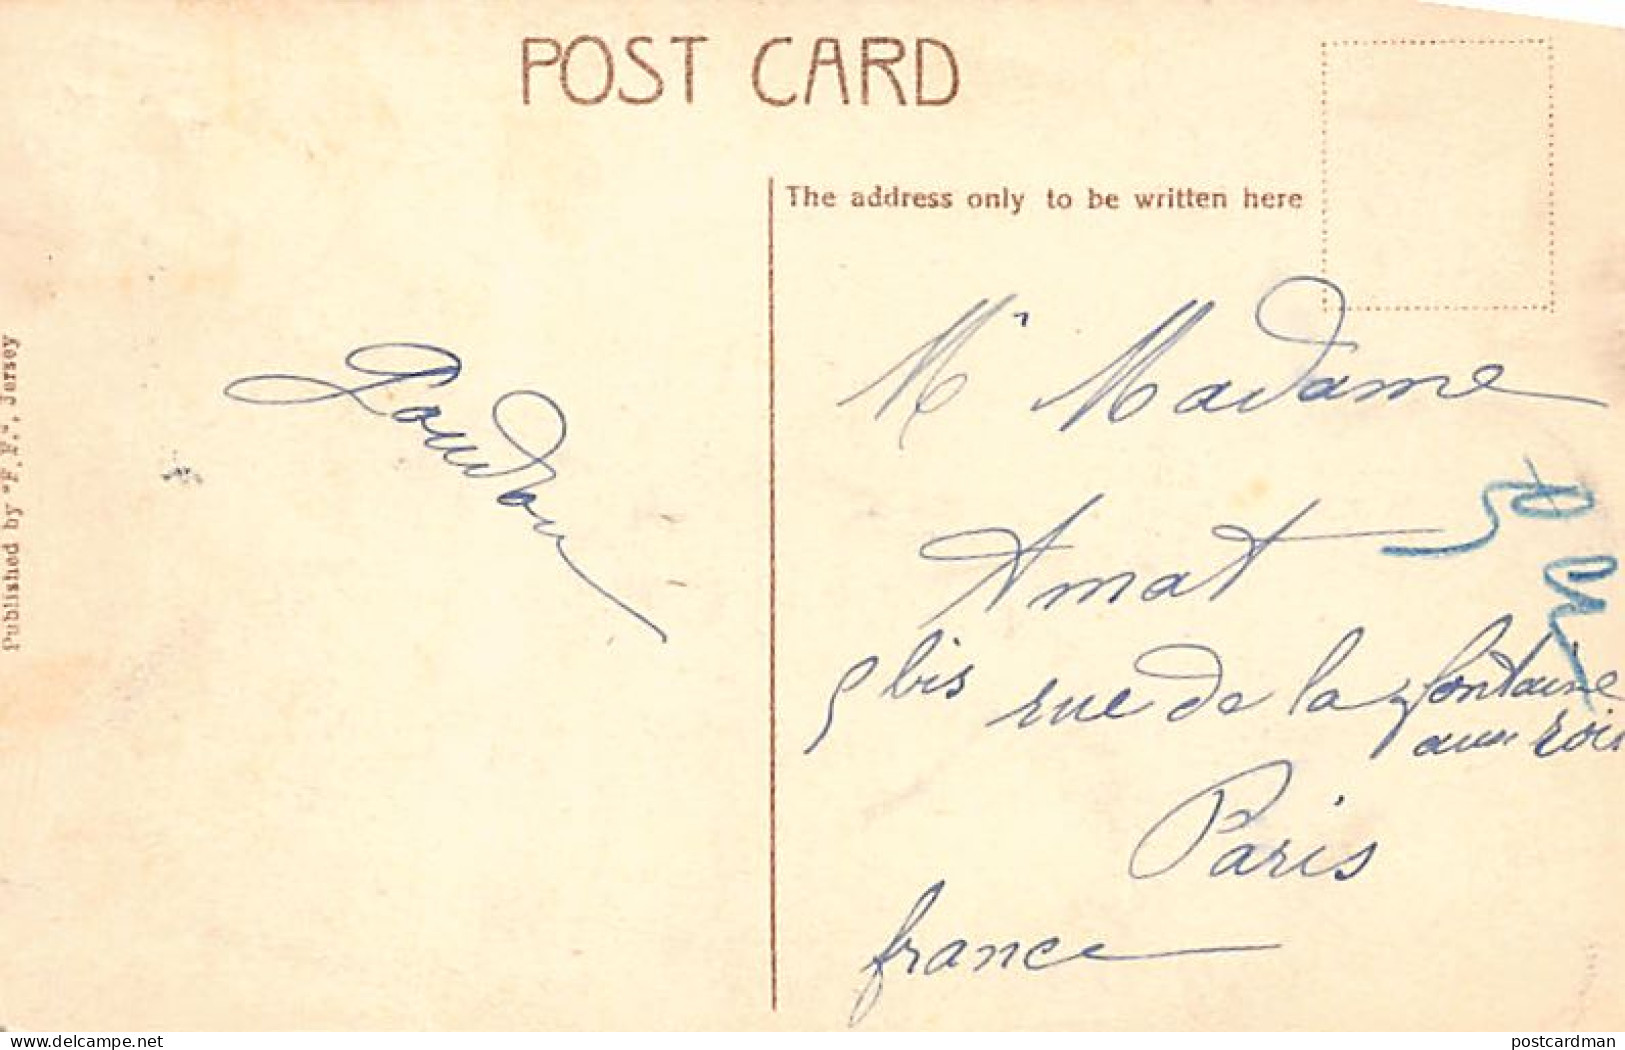 POST CARD
The address only to be written here
Published by "F. F.", Jersey
Mr Madame
Amat
9 bis rue de la fontaine
aux rois
Paris
france
delcampe.net
postcardman